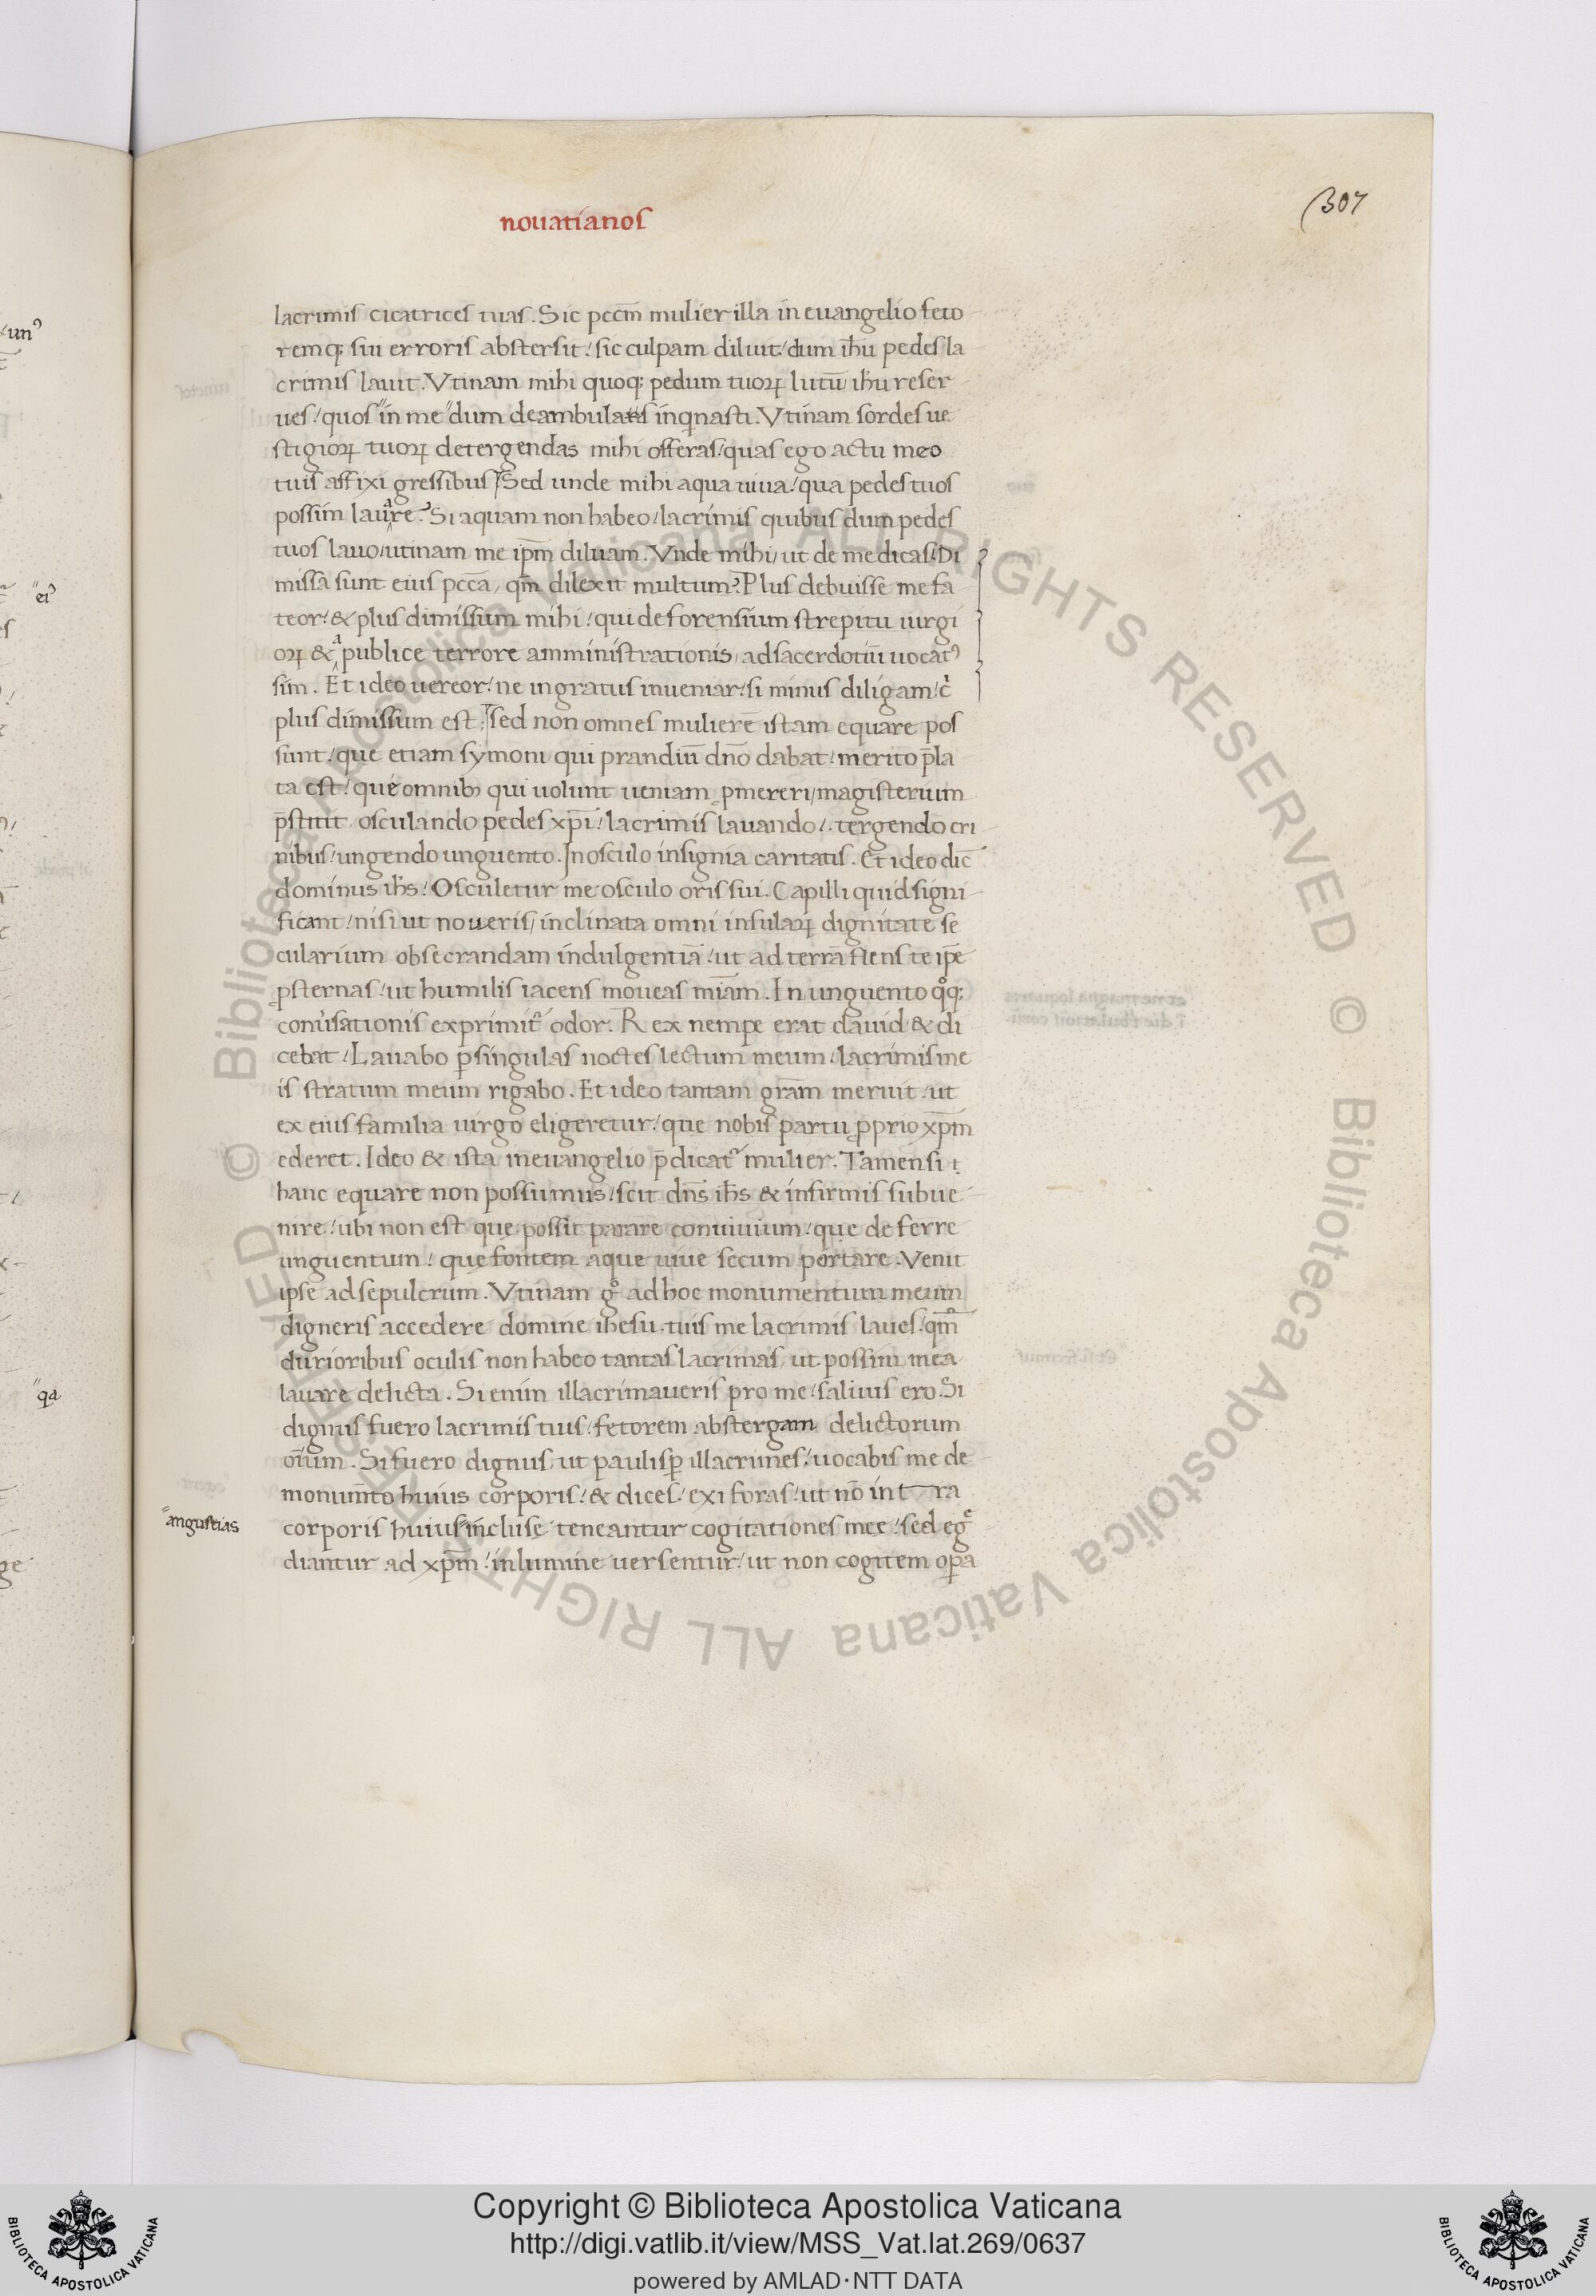 nouatianos
307
lacrimis cicatrices tuas. Sic pccm̄ mulier illa in euangelio feto
remq; sui erroris abstersit/ sic culpam diluit/ dum ih̄u pedes la
crimis lauit. Vtinam mihi quoq; pedum tuoꝝ lutū ih̄u reser
ues/ quos "in me" dum deambulas inqnasti. Vtinam sordes ue
stigioꝝ tuoꝝ detergendas mihi offeras/ quas ego actu meo
tuis affixi gressibus/ Sed unde mihi aqua uiua/ qua pedes tuos
possim lauare? Si aquam non habeo/ lacrimis quibus dum pedes
tuos lauo/ utinam me ip̄m diluam. Vnde mihi/ ut de me dicas/ Di
missa sunt eius pccā, qm̄ dilexit multum? Plus debuisse me fa
teor/ & plus dimissum mihi/ qui de forensium strepitu iurgi
oꝝ & a publice terrore amministrationis, ad sacerdotiū uocatꝰ
sim. Et ideo uereor/ ne ingratus inueniar/ si minus diligam/ c̓
plus dimissum est/ sed non omnes mulierē istam equare pos
sunt/ que etiam symoni qui prandiū dn̄o dabat/ merito p̄la
ta est/ que omnibꝰ qui uolunt ueniam ꝓmereri/ magisterium
p̄stitit, osculando pedes xp̄i/ lacrimis lauando/ tergendo cri
nibus/ ungendo unguento. In osculo insignia caritatis. Et ideo dic̄
dominus ih̄s/ Osculetur me osculo oris sui. Capilli quid signi
ficant/ nisi ut noueris/ inclinata omni insulaꝝ dignitate se
cularium obsecrandam indulgentiā/ ut ad terrā flens te ip̄e
ꝓsternas/ ut humilis iacens moueas miām. In unguento qͦq;
conu̓sationis exprimit᷑ odor. Rex nempe erat dauid & di
cebat/ Lauabo ꝑ singulas noctes lectum meum/ lacrimis me
is stratum meum rigabo. Et ideo tantam grām meruit/ ut
ex eius familia uirgo eligeretur/ que nobis partu ꝓprio xp̄m
ederet. Ideo & ista in euangelio p̄dicat᷑ mulier. Tamen si
hanc equare non possumus/ scit dn̄s ih̄s & infirmis subue
nire/ ubi non est que possit parare conuiuium/ que deferre
unguentum/ que fontem aque uiue secum portare. Venit
ipse ad sepulcrum. Vtinam gͦ ad hoc monumentum meum
digneris accedere domine ihesu tuis me lacrimis laues/ qm̄
durioribus oculis non habeo tantas lacrimas, ut possim mea
lauare delicta. Si enim illacrimaueris pro me/ saluus ero. Si
dignus fuero lacrimis tuis/ fetorem abstergam delictorum
oīum. Si fuero dignus, ut paulisꝑ illacrimes/ uocabis me de
monumn̄to huius corporis/ & dices/ exi foras/ ut nō intra
"angustias
corporis huius "incluse teneantur cogitationes mee/ sed egͤ
diantur ad xp̄m/ in lumine uersentur/ ut non cogitem oꝑa
/unꝰ
"eiꝰ
"qa
Copyright © Biblioteca Apostolica Vaticana
http://digi.vatlib.it/view/MSS_Vat.lat.269/0637
powered by AMLAD·NTT DATA
BIBLIOTECA APOSTOLICA VATICANA
BIBLIOTECA APOSTOLICA VATICANA
© Biblioteca Apostolica Vaticana ALL RIGHTS RESERVED © Biblioteca Apostolica Vaticana ALL RIGHTS RESERVED